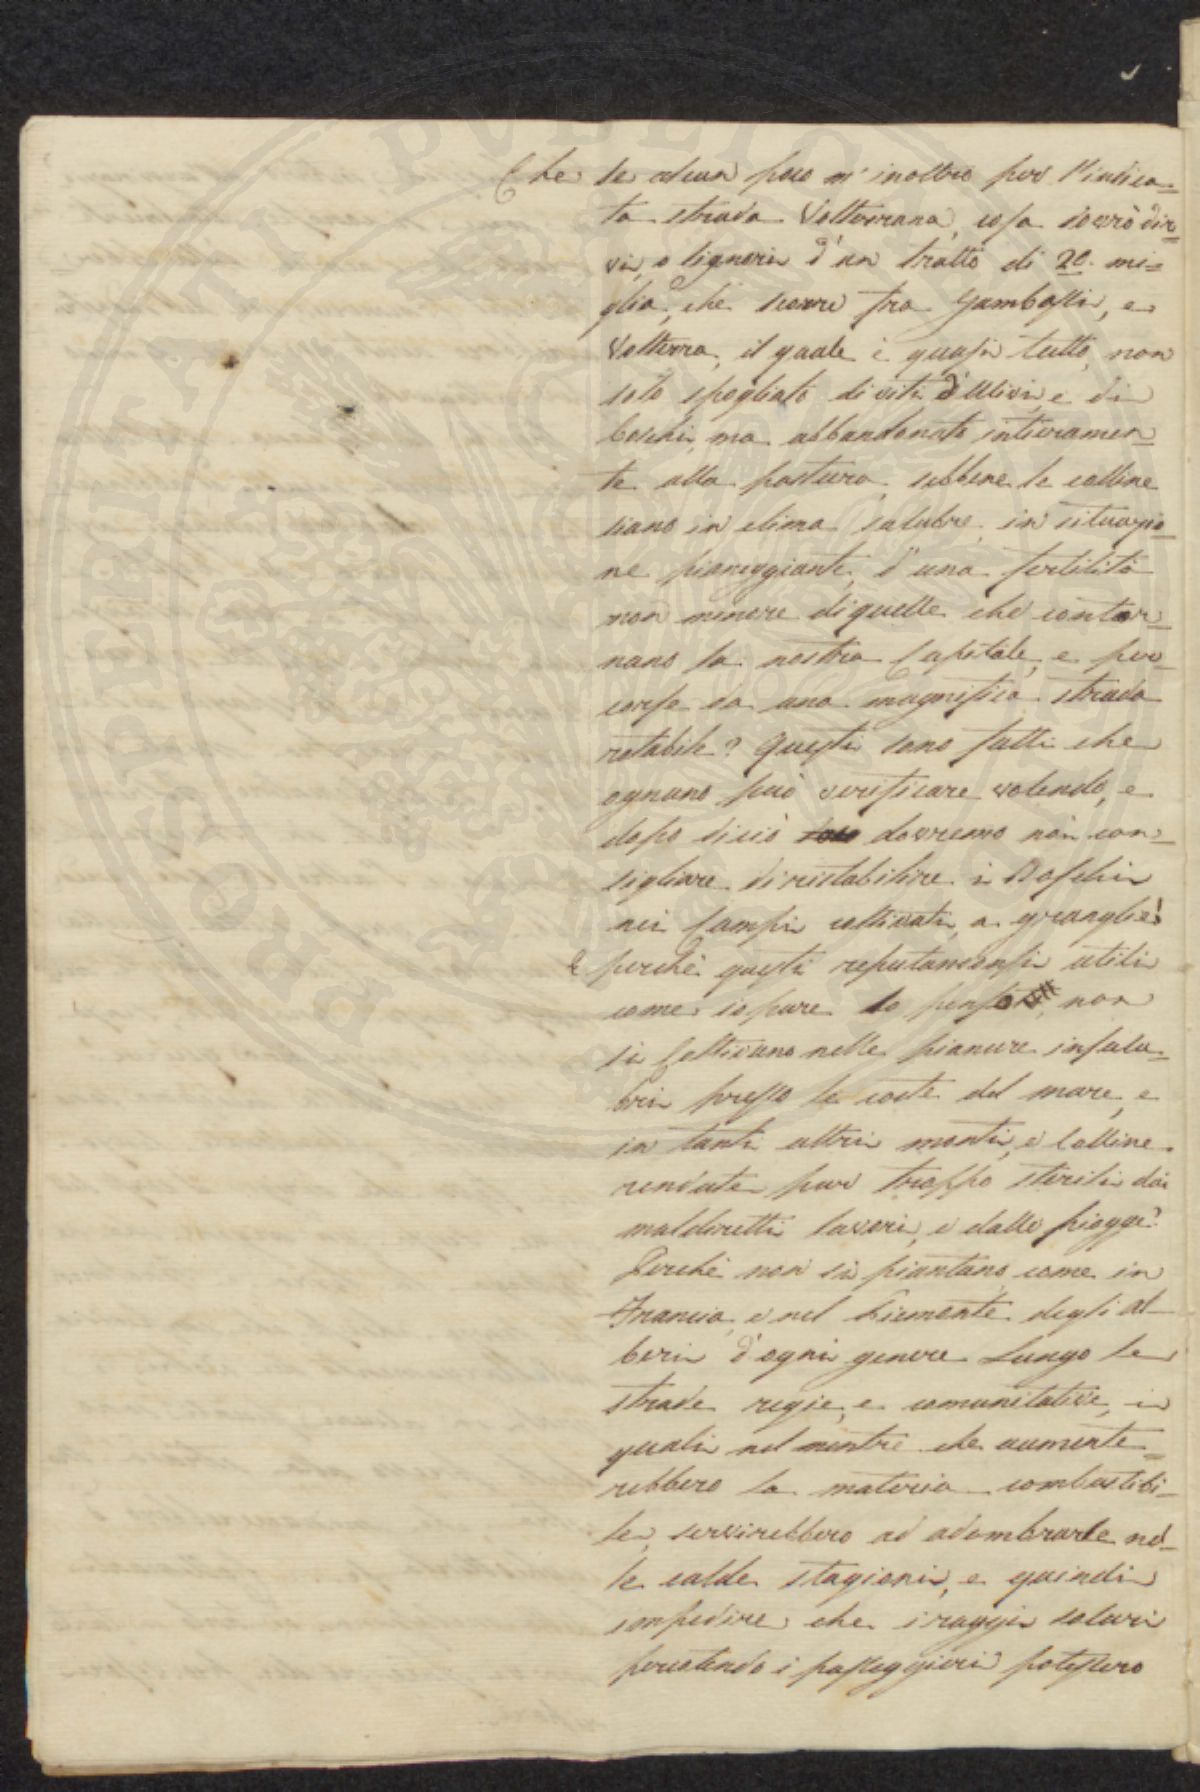 Che se alcun poco m'inoltro per l'indica=
ta strada Volterrana, cosa dovrò dir=
vi, o Signori d'un tratto di 20. mi=
glia, che scorre fra Gambassi, e
Volterra, il quale è quasi tutto, non
solo spogliato di viti d'Ulivi, e di
boschi, ma abbandonato intieramen=
te alla pastura, sebbene le colline
siano in clima salubre, in situazio=
ne pianeggiante, d'una fertilità
non minore di quelle che contor=
nano la nostra Capitale, e per=
corse da una magnifica strada
rotabile? Questi sono fatti che
ognuno può verificare volendo, e
dopo di ciò dovremo noi con=
sigliare di ristabilire i Boschi
nei Campi coltivati a granaglie!
E perchè questi reputandosi utili
come io pure lo penso, non
si coltivano nelle pianure insalu=
bri presso le coste del mare, e
in tanti altri monti, e Colline
rendute pur troppo sterili dai
maldiretti lavori, e dalle piogge?
Perchè non si piantano come in
Francia, e nel Piemonte degli Al=
beri d'ogni genere Lungo le
strade regie, e comunitative, i
quali nel mentre che aumente=
rebbero la materia combustibi=
le, servirebbero ad adombrarle nel=
le calde stagioni, e quindi
impedire che i raggi solari
percotendo i passeggieri potessero
PROSPERITATI PUBLICAE